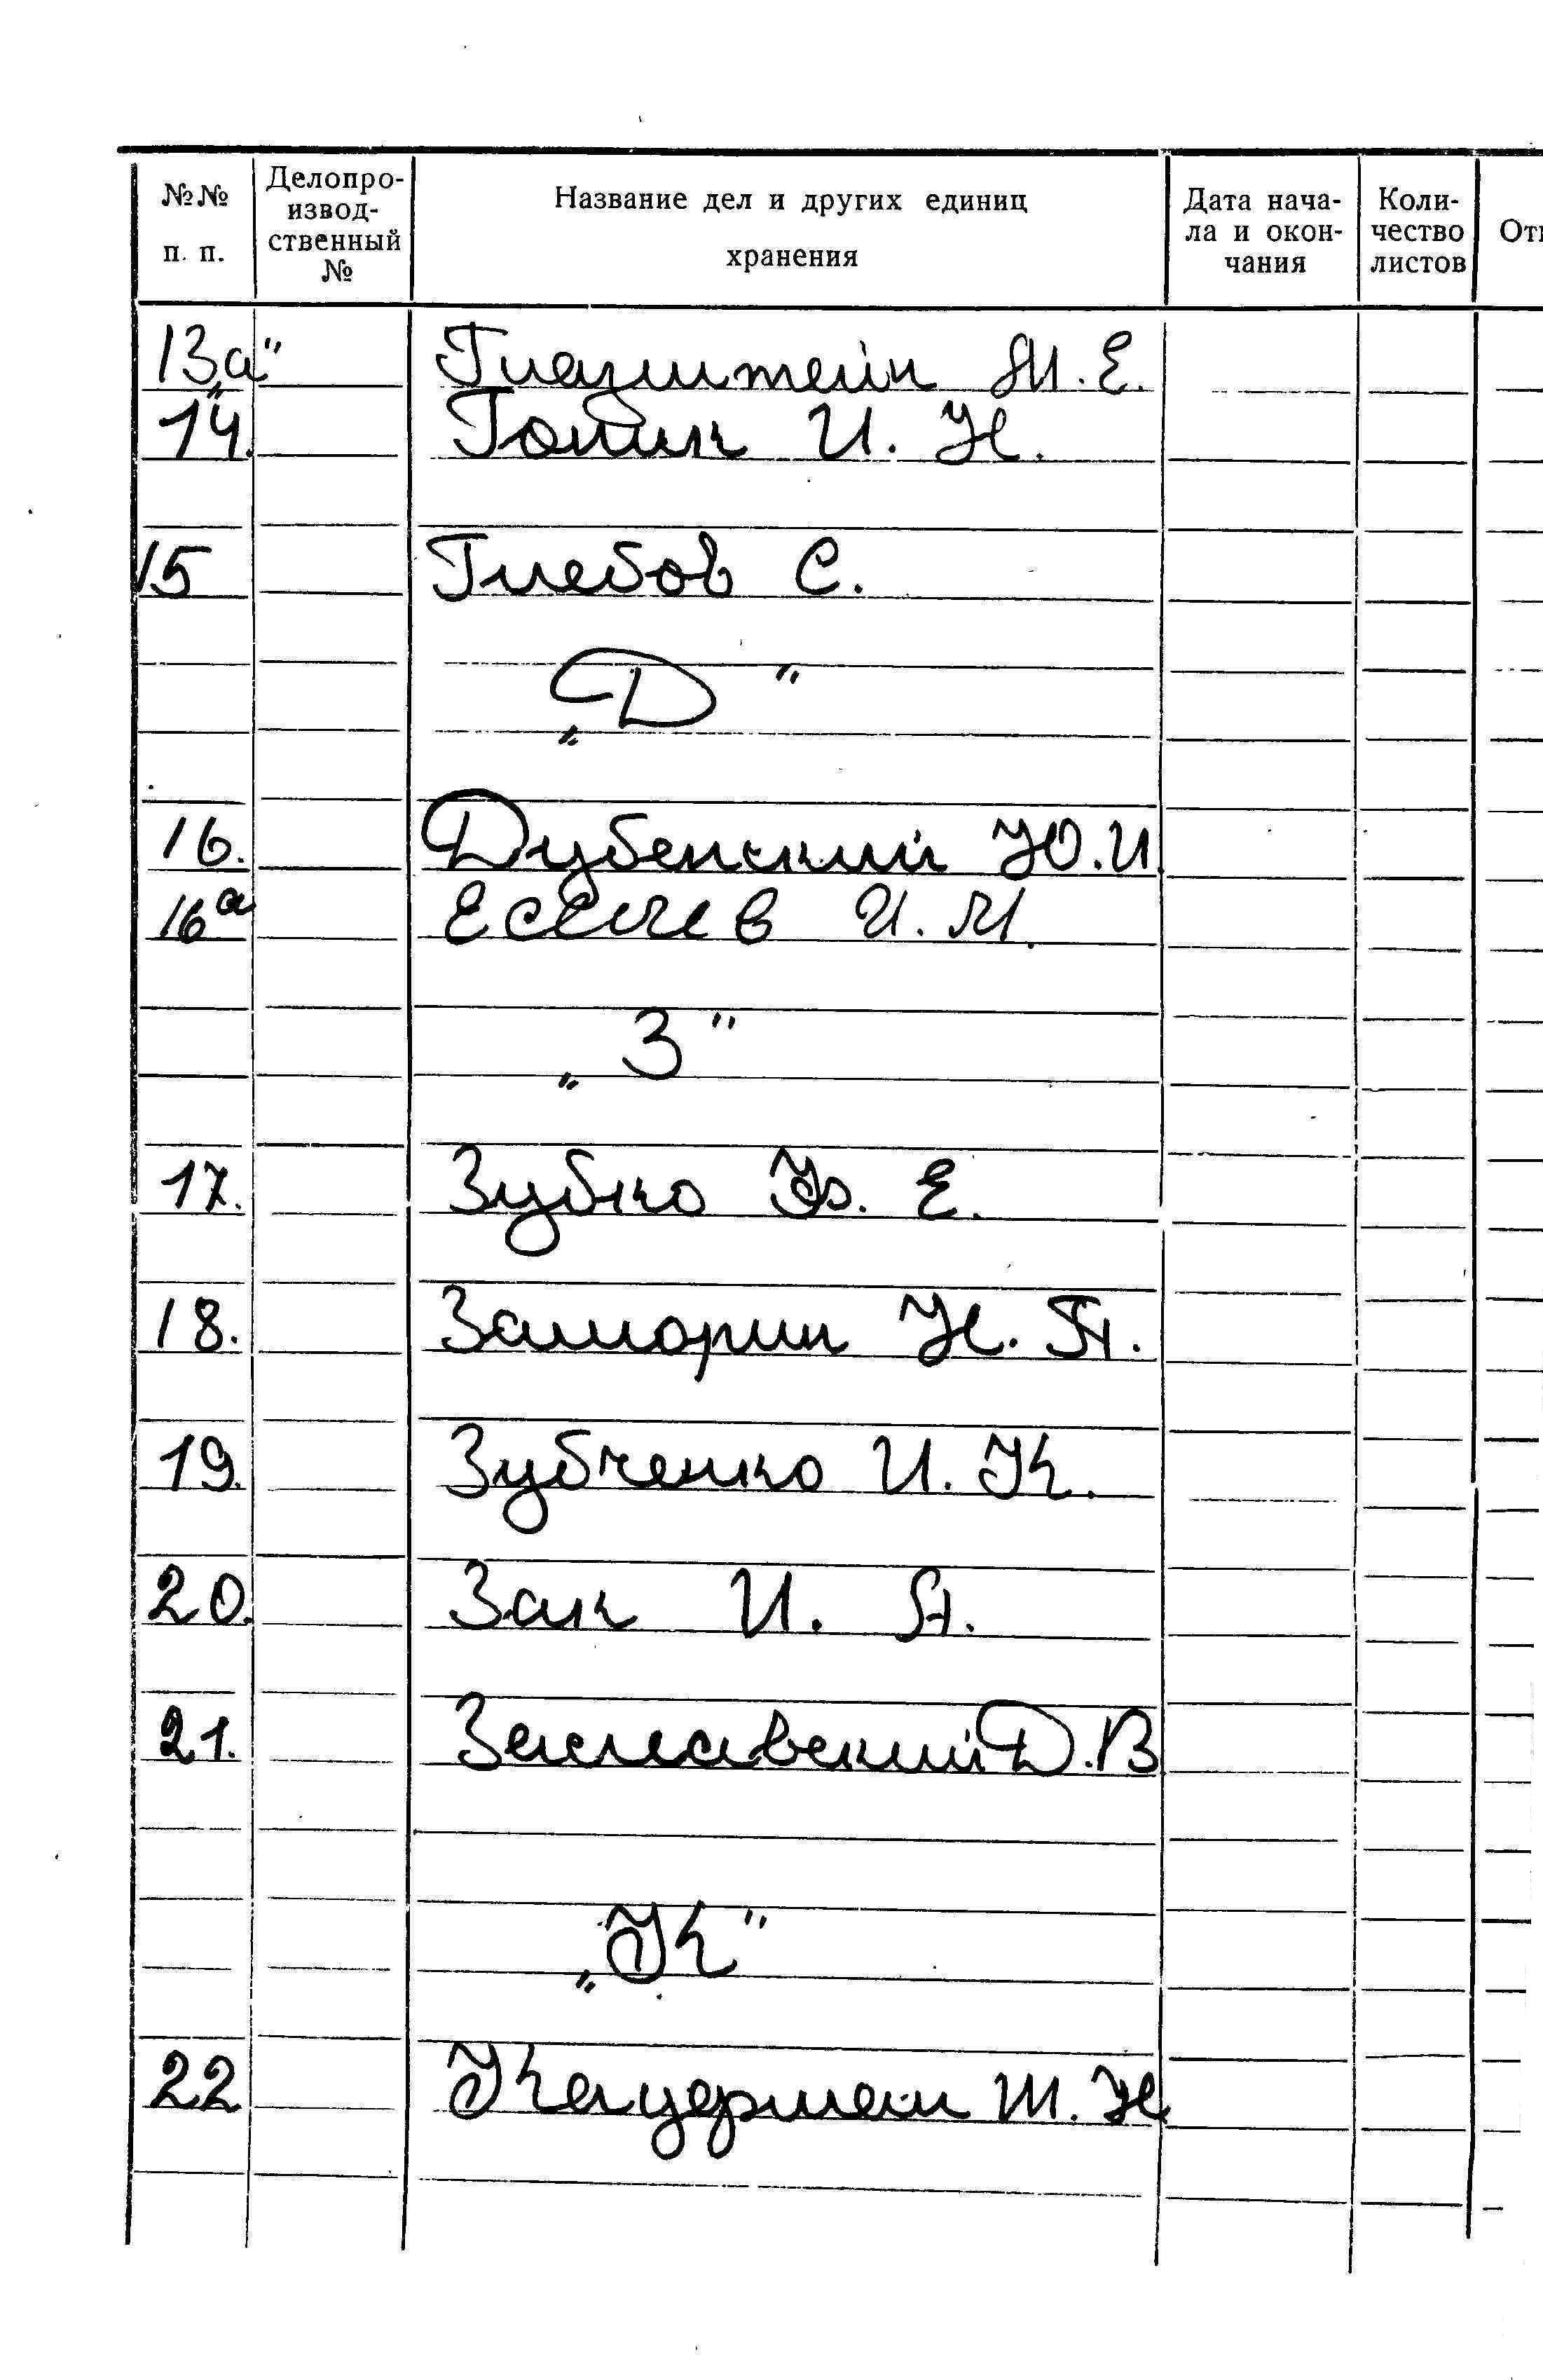 №№ п. п.
Делопро-
извод-
ственный
№
Название дел и других единиц
хранения
Дата нача-
ла и окон-
чания
Коли-
чество
листов
От
13„а"
Глазштейн М. Е.
14.
Голик И. Н.
15
Глебов С.
„Д"
16.
Дубенский Ю.И.
16а
И. М.
„З"
17.
Зубко Ф. Е.
18.
Заморин Н. П.
19.
Зубченко И. К.
20.
Зак И. А.
21.
Заславский Д.В.
„К"
22
Кацерман Ш. Н.